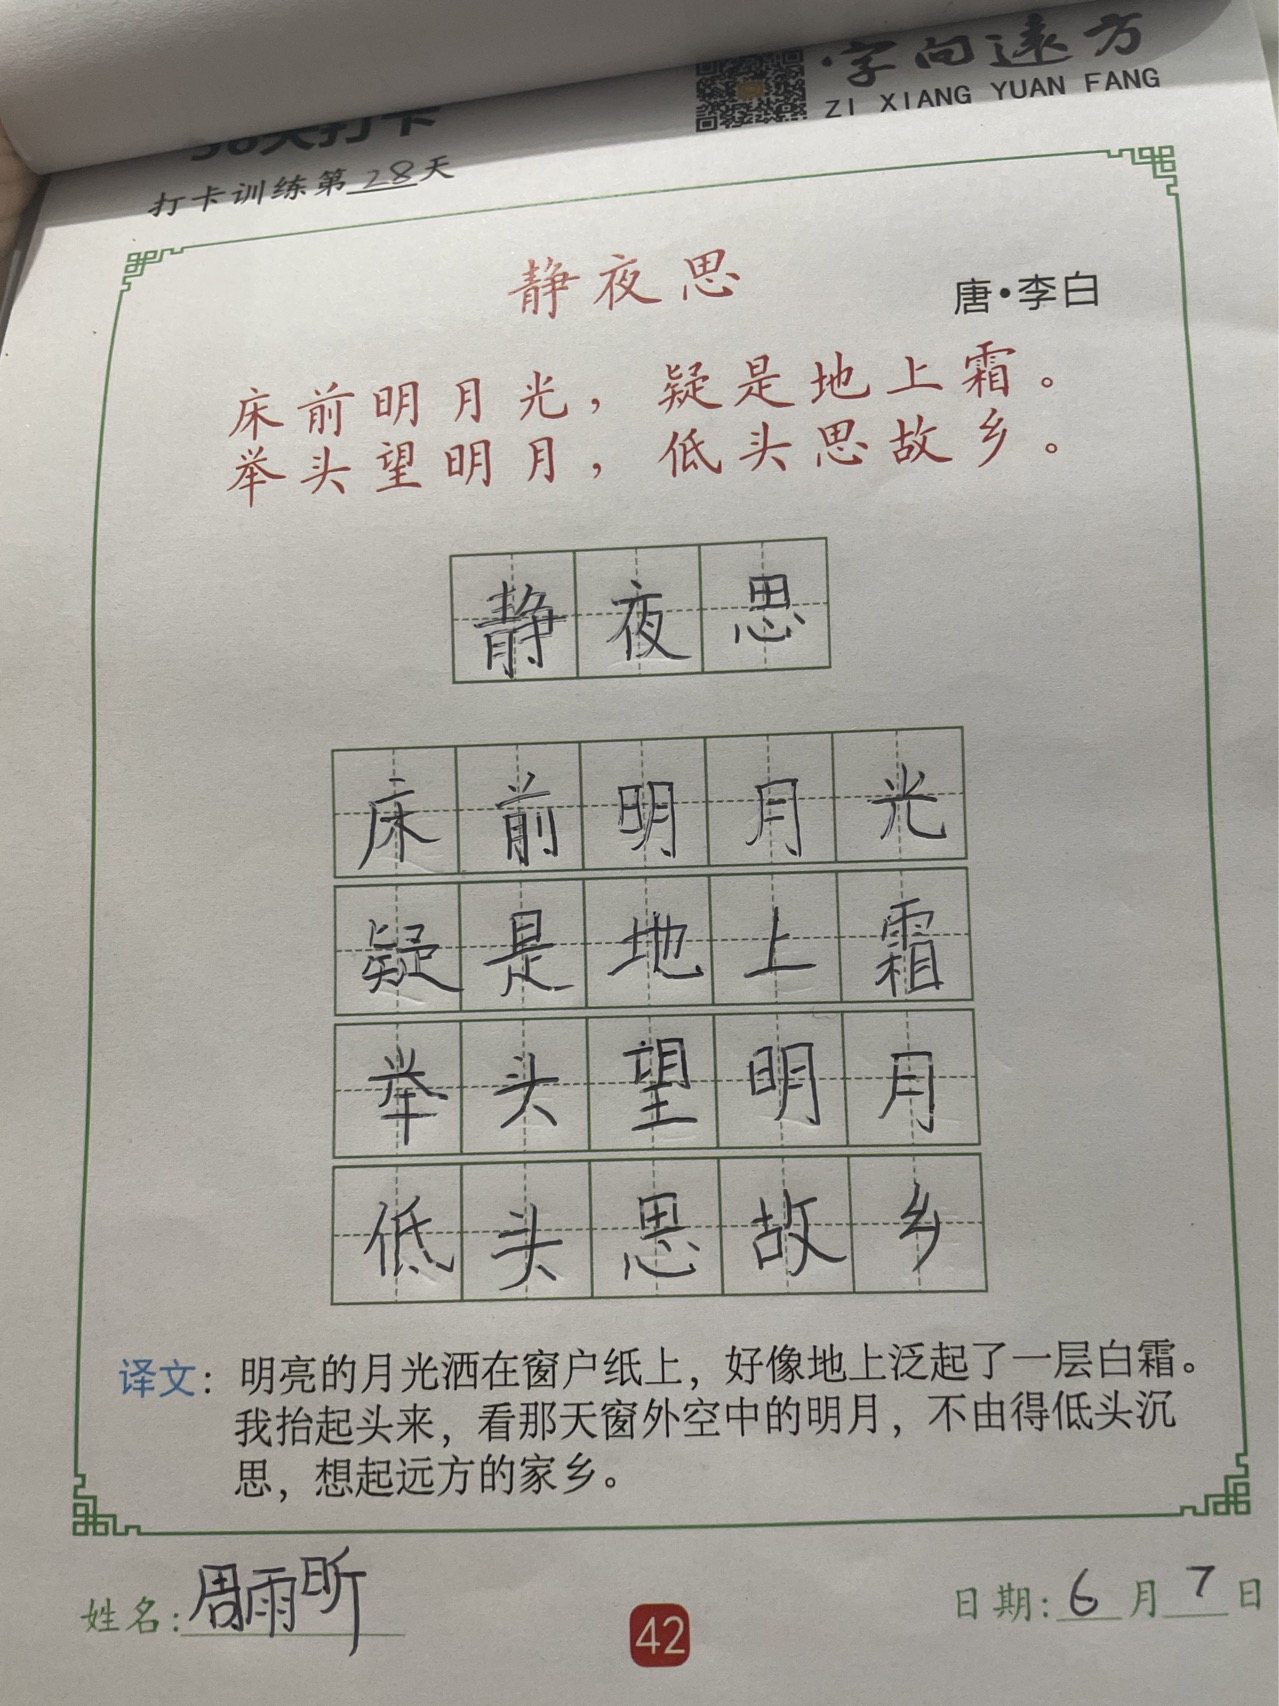 字向远方
ZI XIANG YUAN FANG
天打卡
打卡训练第28天
静夜思
唐·李白
床前明月光，疑是地上霜。
举头望明月，低头思故乡。
静夜思
床前明月光
疑是地上霜
举头望明月
低头思故乡
译文：明亮的月光洒在窗户纸上，好像地上泛起了一层白霜。
我抬起头来，看那天窗外空中的明月，不由得低头沉
思，想起远方的家乡。
姓名:周雨昕
42
日期:6月7日